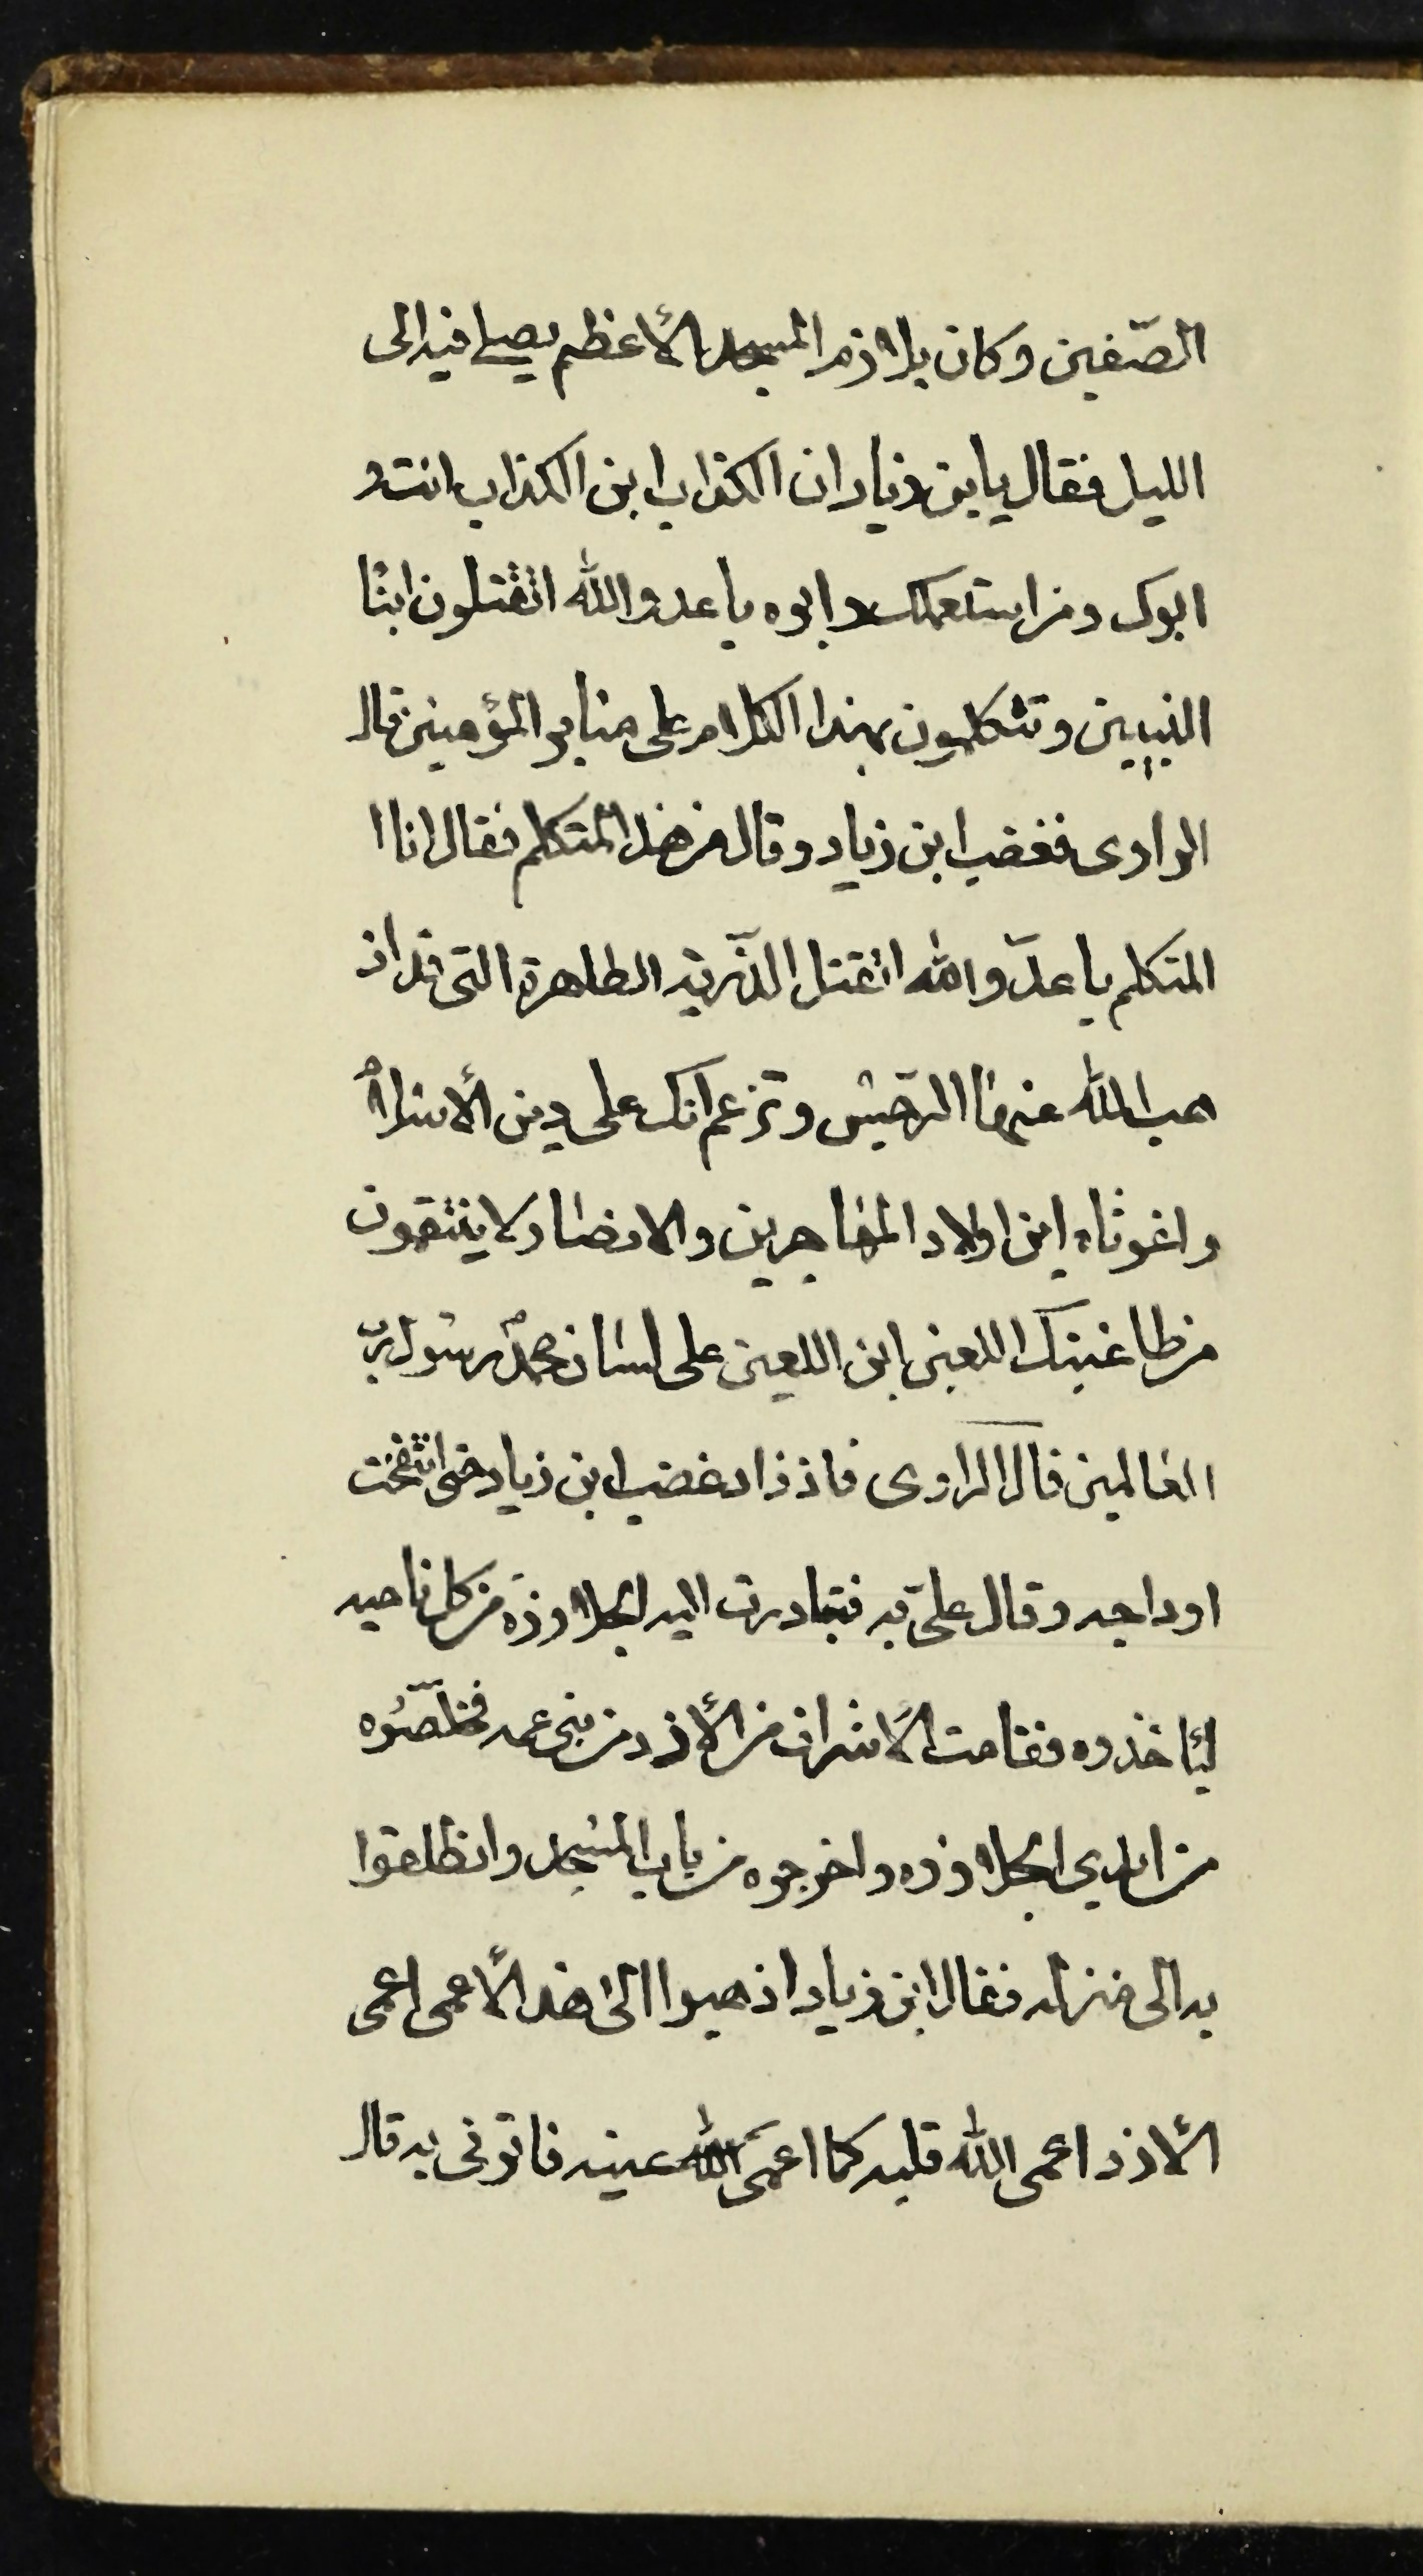 الصّفين وكان يلازم المسجد الأعظم يصلي فيه الى
الليل فقال يابن زياد ان الكذاب ابن الكذاب انت و
ابوك ومن استعملك وابوه يا عدو الله اتقتلون ابنا
النبيين وتتكلمون بهذا الكلام على منابر المؤمنين قال
الراوى فغضب ابن زياد وقال من هذا المتكلم فقال انا ا
المتكلم يا عدّو الله اتقتل الذّرية الطاهرة التى قد اذ
هب الله عنها الرّجس وتزعم انك على دين الأسلام
واغوثاه اين اولاد المهاجرين والانصار لا ينتقمون
من طاغيتك اللعين ابن اللعين على لسان محمد رسول ربّ
العالمين قال الراوى فازداد غضب ابن زياد حتى انتفخت
اوداجه وقال علىّ به فتبادرت اليه الجلاوزة من كل ناحيه
ليأخذوه فقامت الأشراف من الأزد من بنى عمه فخلّصوه
من ايدي الجلاوزه واخرجوه من باب المسجد وانطلقوا
به الى منزله فقال ابن زياد اذهبوا الى هذا الأعمى اعمى
الأزد اعمى الله قلبه كما اعمى الله عينه فاتونى به قال